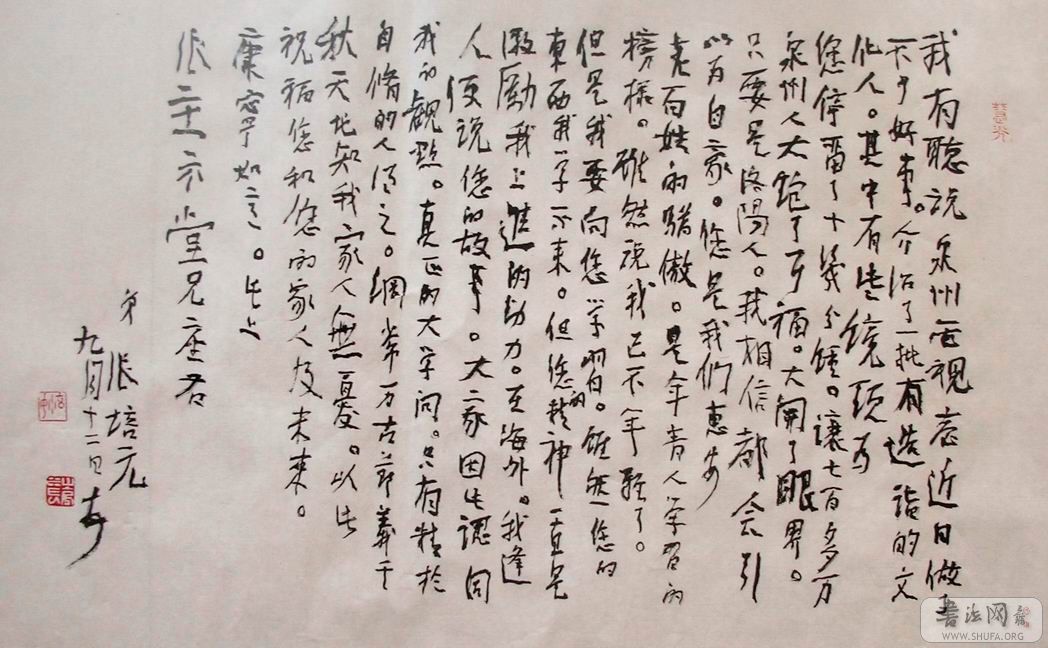 我有聽説泉州電視台近日做了
不少好事。介绍了一批有造詣的文
化人。其中有些鏡頭为
您停留了十幾分鍾。讓七百多万
泉州人大饱了耳福。大開了眼界。
只要是洛陽人。我相信都会引
以为自豪。您是我们惠安
老百姓的骄傲。是年青人学習的
榜樣。雖然説我已不年軽了。
但是我要向您学習。雖然您的
東西我学不来。但您的精神一直是
激勵我上進的动力。在海外。我逢
人便说您的故事。大家因此認同
我的觀點。真正的大学问。只有精於
自脩的人得之。綱常万古節義千
秋天地知我家人無憂。以此
祝福您和您的家人及未来。
康寧如意。此上
張 示堂兄座右
弟 張培元
九月十二日
書法网
WWW.SHUFA.ORG